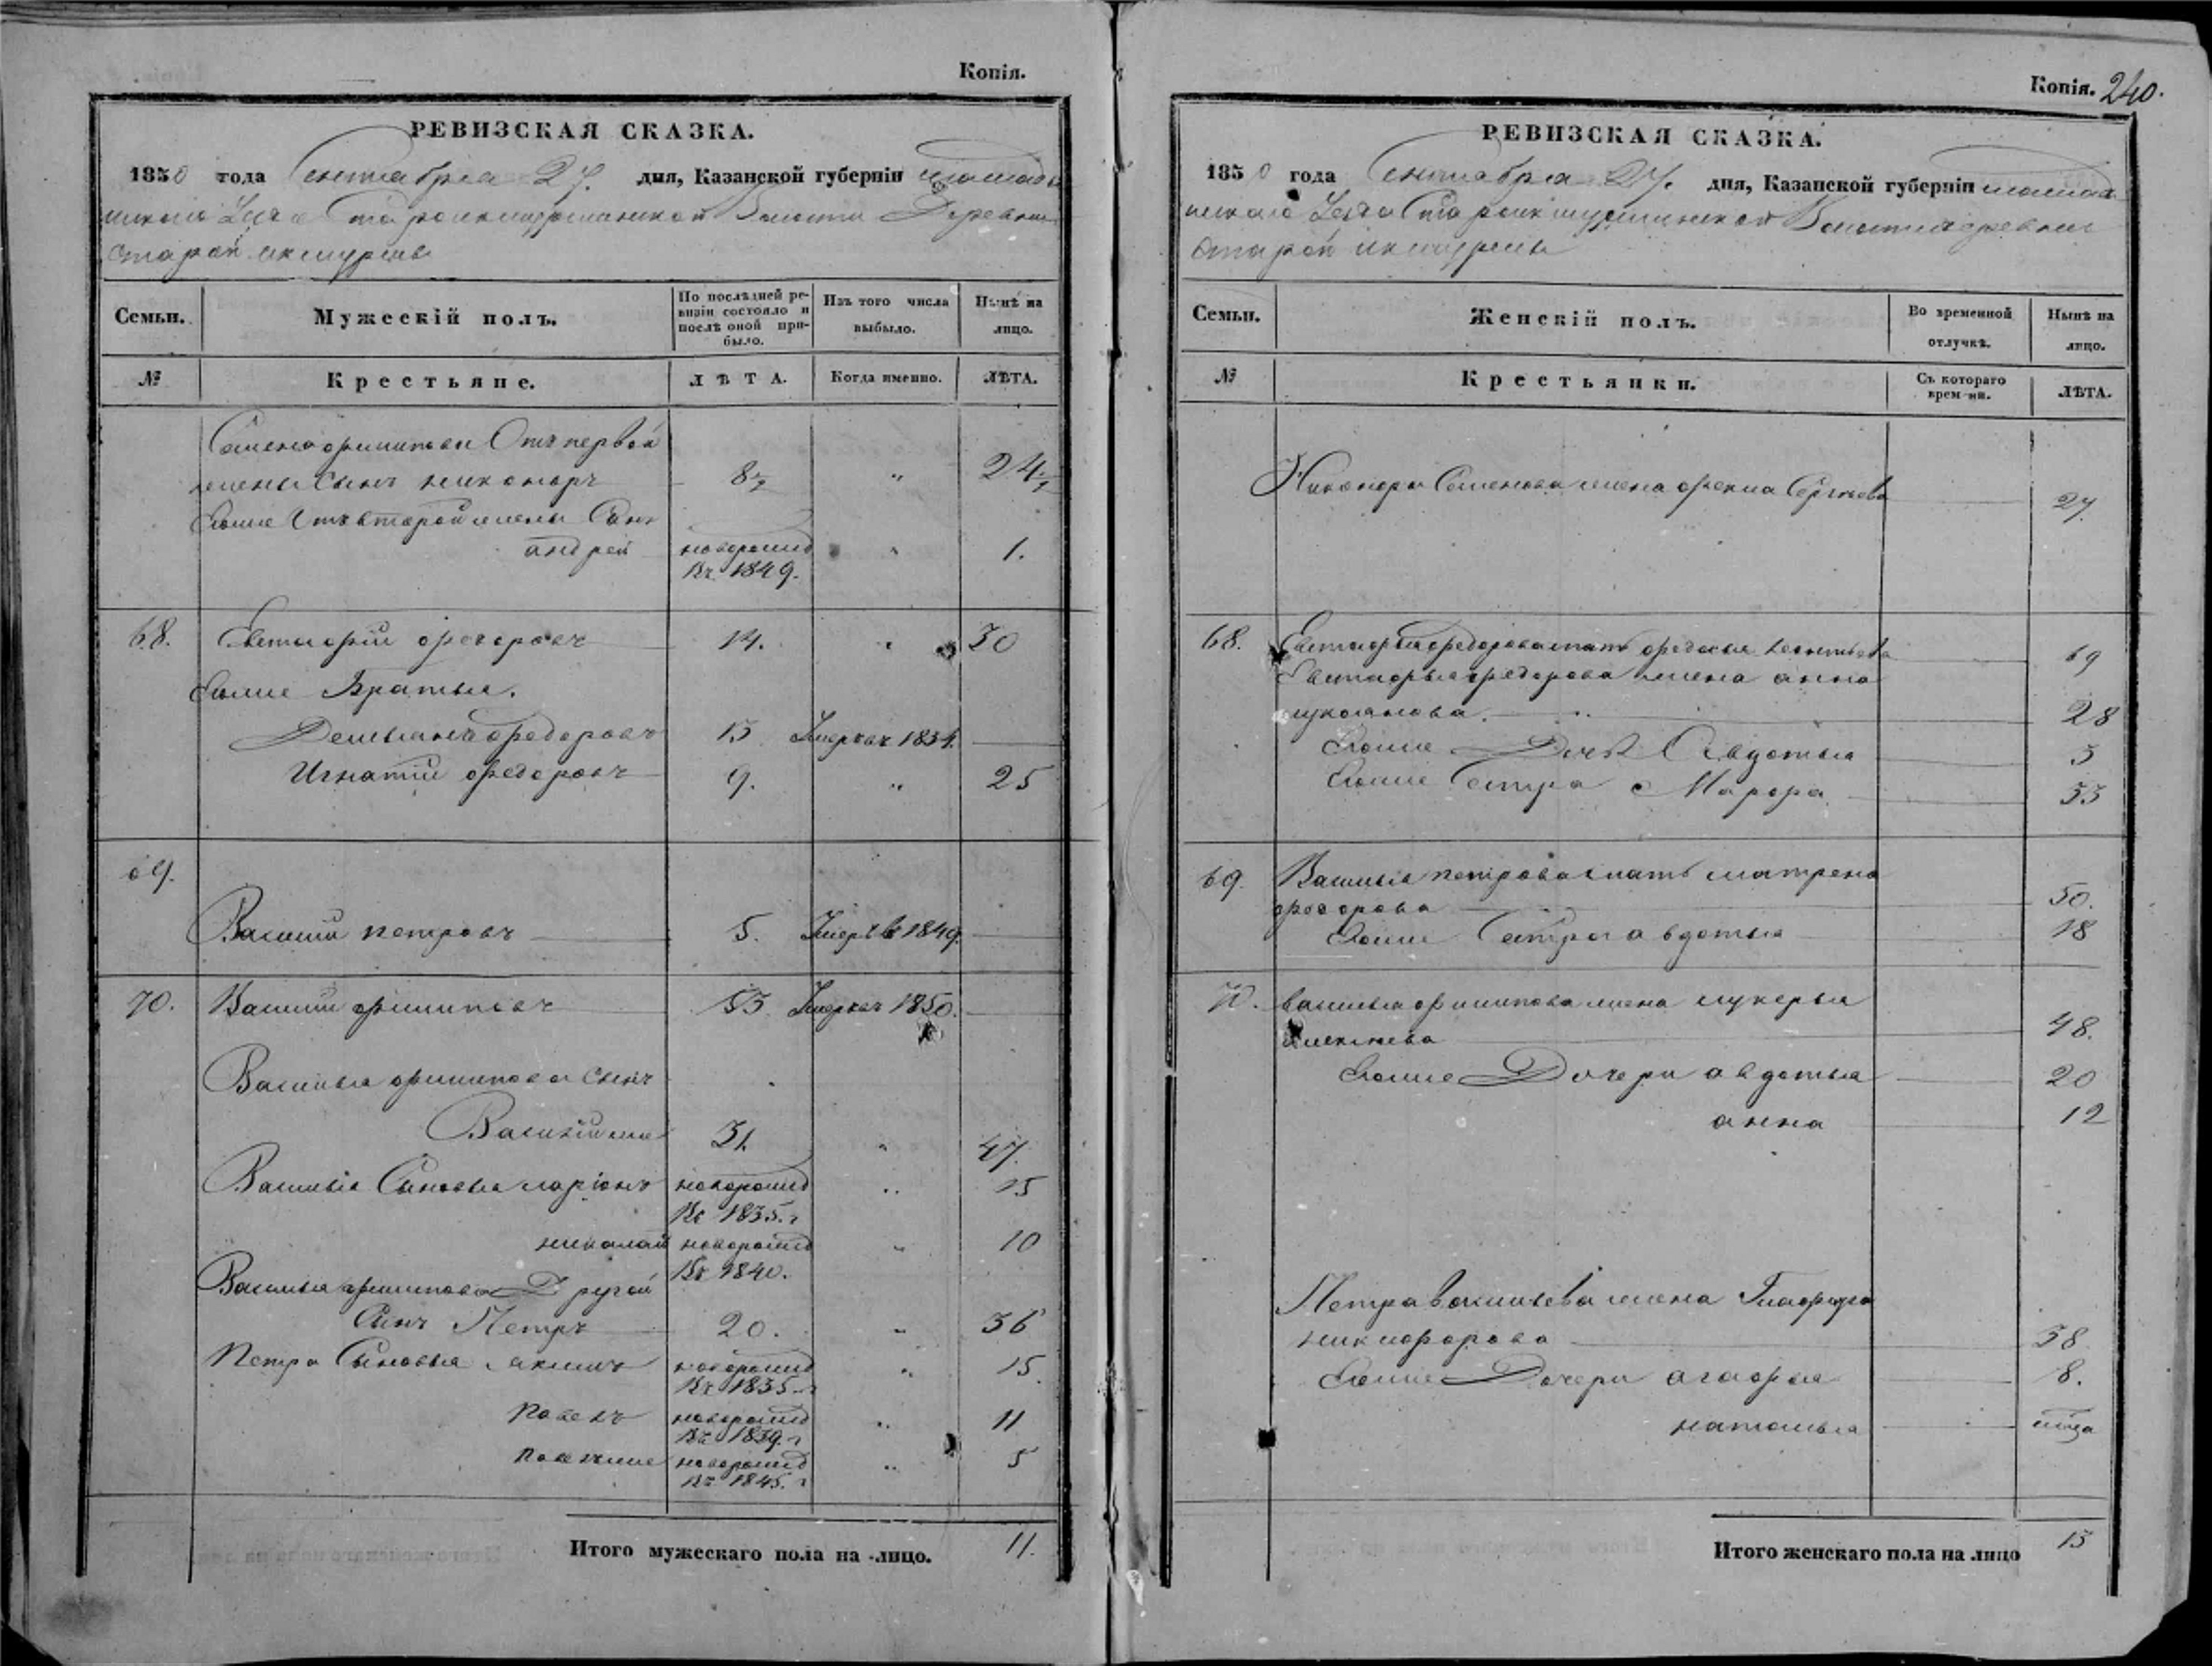 Копія.
РЕВИЗСКАЯ СКАЗКА.
1850 года Сентября 27. дня, Казанской губерніи
Волости Деревни
Старой икшурмы
Семьи.
Мужескій полъ.
По послѣдней ре-
визіи состояло и
послѣ оной при-
было.
Изъ того числа
выбыло.
Нынѣ на
лицо.
№
Крестьяне.
ЛѢТА.
Когда именно.
ЛѢТА.
Семена филипова Отъ первой
жены сынъ никоноръ 8½ " 24½
Ево же отъ второй жены Сынъ
андрей новорожд " 1.
въ 1849.
68. Евстафій федоровъ 14. " 30
Ево же Братья.
Демьянъ федоровъ 13 Умеръ въ 1834.
Игнатій федоровъ 9. " 25
69.
Василій петровъ 5. Умеръ въ 1849.
70. Василій филиповъ 53 Умеръ въ 1850.
Василья филипова сынъ
Василій же 31. " 47.
Василья Сыновья ларіонъ новорожд " 15
въ 1835. г
николай новорожд " 10
въ 1840.
Василья филипова Другой
Сынъ Петръ 20. " 36
Петра Сыновья акимъ новорожд " 15.
въ 1835 г
павелъ новорожд " 11
въ 1839. г
павелъ же новорожд " 5
въ 1845. г
Итого мужескаго пола на лицо. 11.
Копія. 240.
РЕВИЗСКАЯ СКАЗКА.
1850 года Сентября 27. дня, Казанской губерніи
Волости деревни
Старой икшурмы
Семьи.
Женскій полъ.
Во временной
отлучкѣ.
Нынѣ на
лицо.
№
Крестьянки.
Съ котораго
времени.
ЛѢТА.
Никонора Семенова жена фекла Сергѣева 27.
68. Евстафья федорова мать федосья леонтьева 69
Евстафья федорова жена анна
лукоянова. 28
Ево же Дочь Авдотья 3
Ево же Сестра Марфа 33
69. Василья петрова мать матрена
федорова 50.
Ево же Сестра авдотья 18
70. василья филипова жена лукерья
Алексѣева 48.
Ево же Дочери авдотья 20
анна 12
Петра васильева жена Глафира
никифорова 38.
Ево же Дочери агафья 8.
наталья
Итого женскаго пола на лицо 13